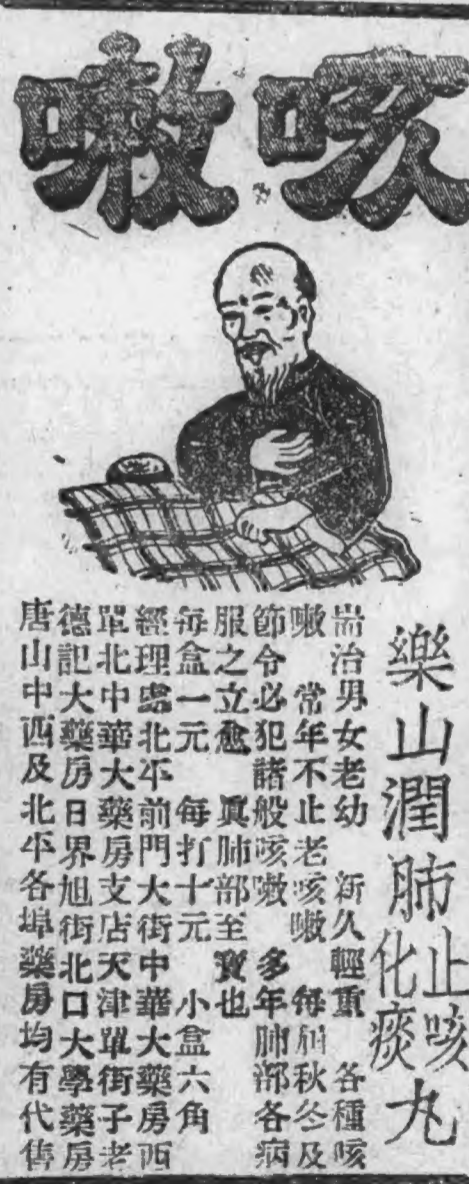 咳嗽
樂山潤肺止咳化痰丸
耑治男女老幼 新久輕重 各種咳
嗽 常年不止老咳嗽 每屆秋冬及
節令必犯諸般咳嗽 多年肺部各病
服之立愈 眞肺部至寶也
每盒一元 每打十元 小盒六角
經理處北平前門大街中華大藥房西
單北中華大藥房支店天津單街子老
德記大藥房日界旭街北口大學藥房
唐山中西及北平各埠藥房均有代售